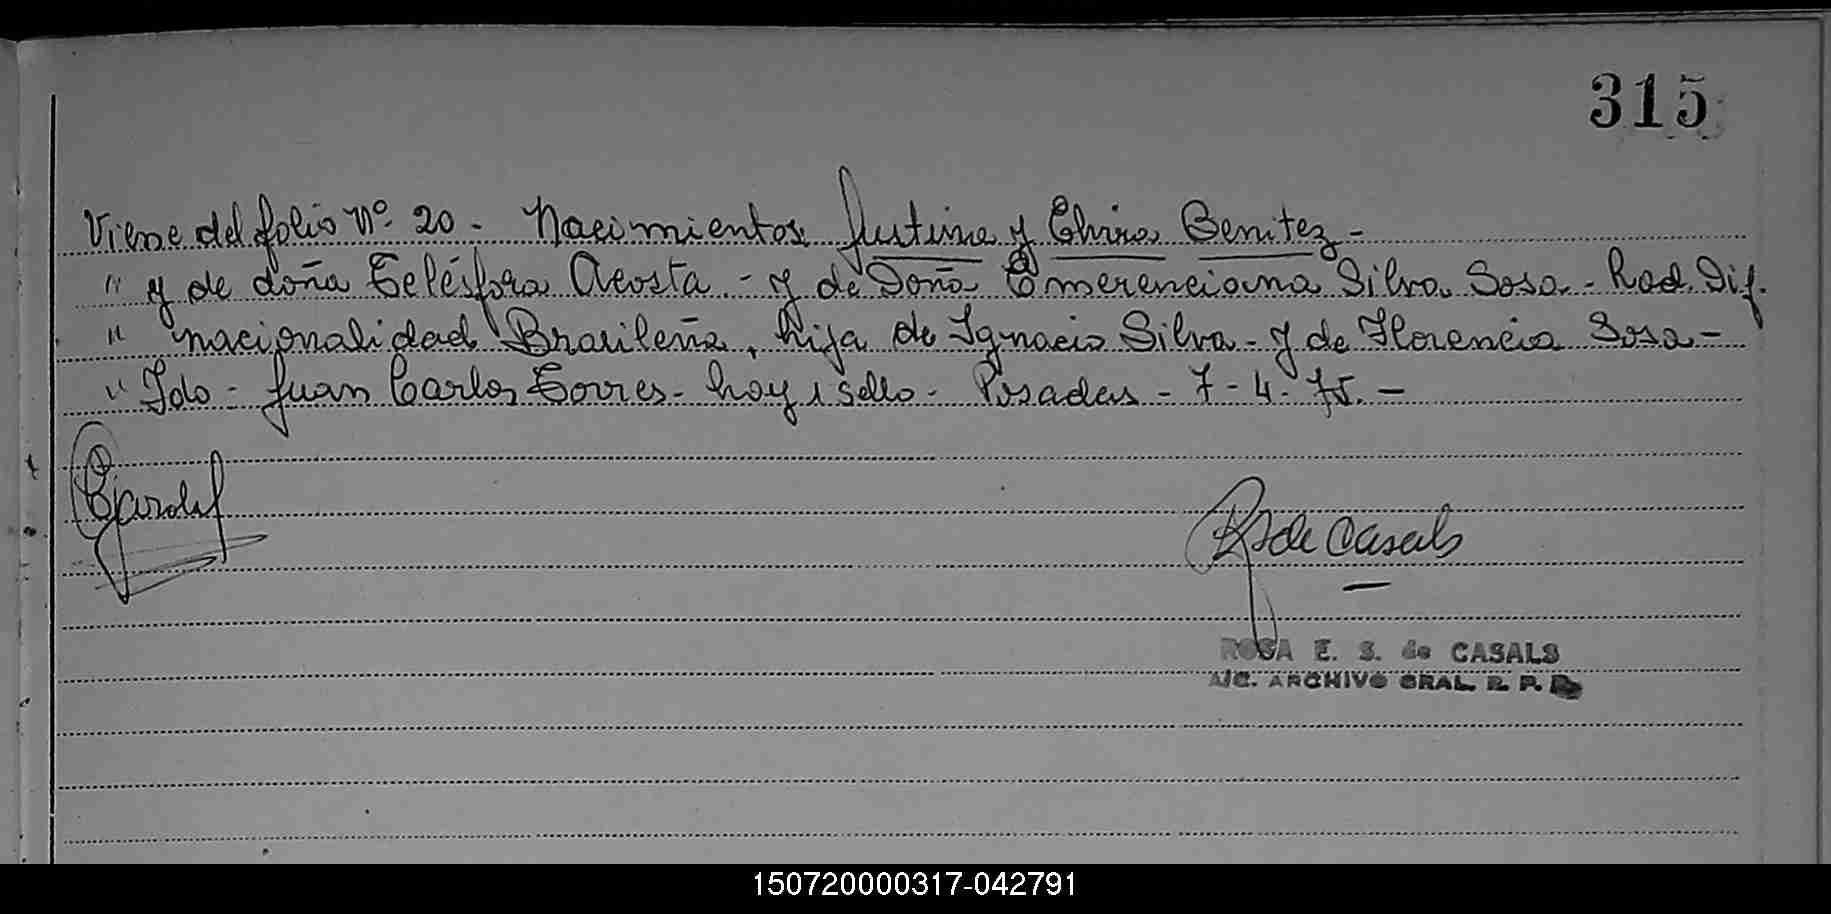 315
Viene del folio Nº 20 - Nacimientos Justina y Elvira Benitez -
" y de doña Telésfora Acosta - y de Doña Emerenciana Silva Sosa - Rad. Dif.
" nacionalidad Brasileña, hija de Ignacio Silva - y de Florencia Sosa -
" Fdo - Juan Carlos Torres - hoy 1 sello - Posadas - 7 - 4 - 75. -
de Casals
ROSA E. S. de CASALS
A/C. ARCHIVO GRAL. R. P.
150720000317-042791